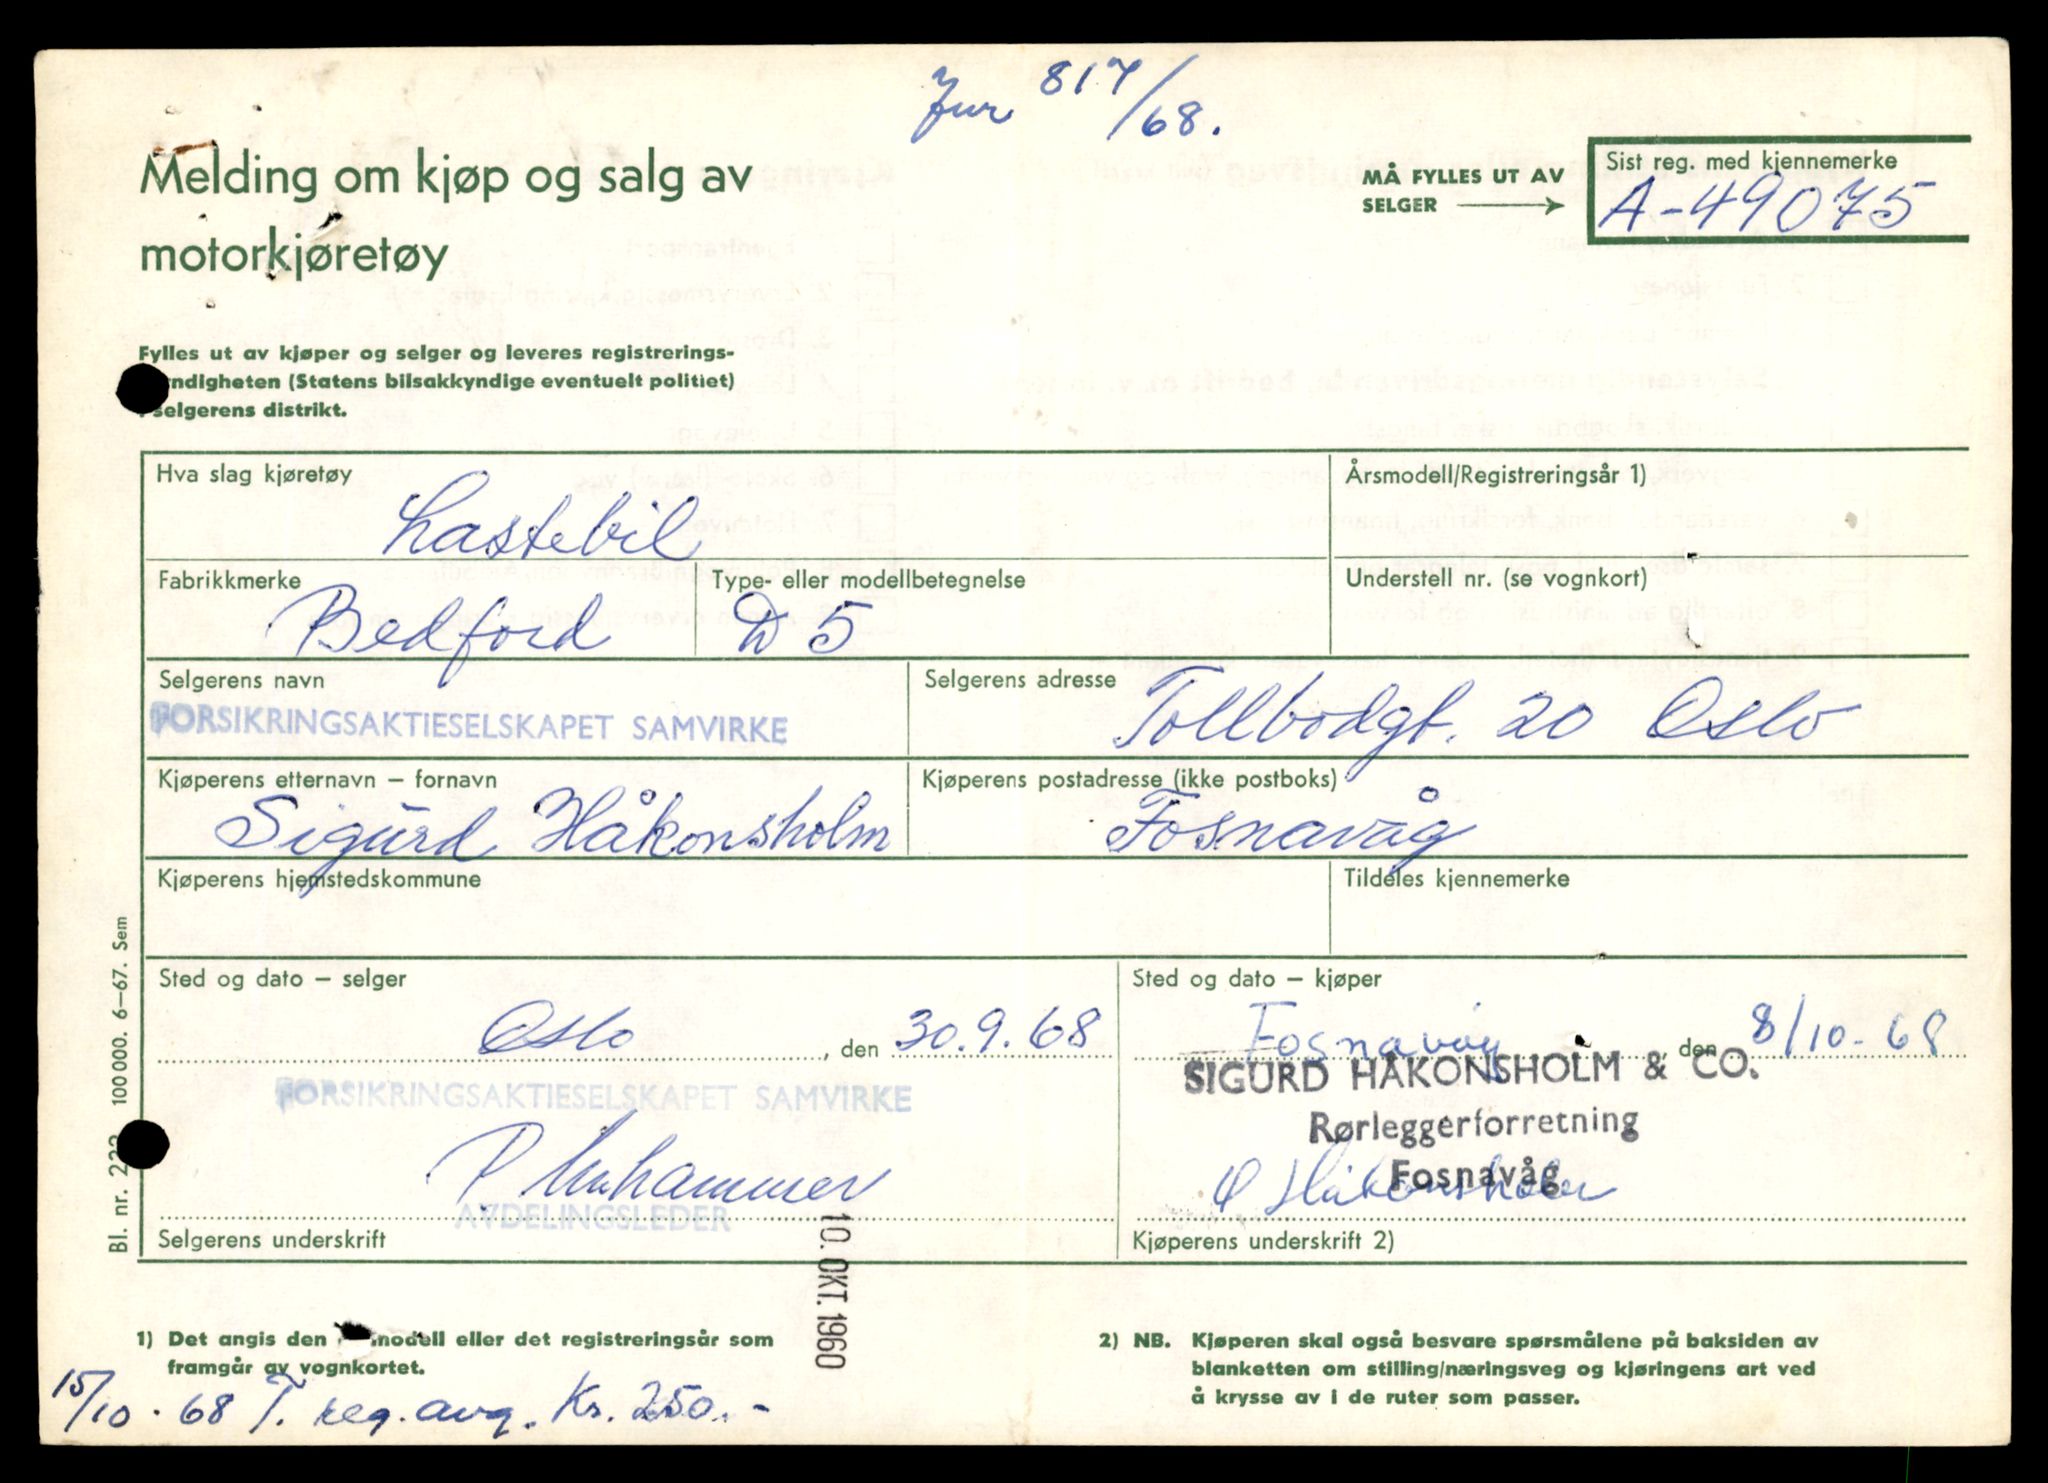 Jur 817/68.
Melding om kjøp og salg av
motorkjøretøy
MÅ FYLLES UT AV
SELGER
Sist reg. med kjennemerke
A-49075
Fylles ut av kjøper og selger og leveres registrerings-
ndigheten (Statens bilsakkyndige eventuelt politiet)
selgerens distrikt.
Hva slag kjøretøy
Lastebil
Årsmodell/Registreringsår 1)
Fabrikkmerke
Bedford
Type- eller modellbetegnelse
D5
Understell nr. (se vognkort)
Selgerens navn
FORSIKRINGSAKTIESELSKAPET SAMVIRKE
Selgerens adresse
Tollbodgt. 20 Oslo
Kjøperens etternavn – fornavn
Sigurd Håkonsholm
Kjøperens postadresse (ikke postboks)
Fosnavåg
Kjøperens hjemstedskommune
Tildeles kjennemerke
Sted og dato – selger
Oslo, den 30.9.68
FORSIKRINGSAKTIESELSKAPET SAMVIRKE
AVDELINGSLEDER
Selgerens underskrift
Sted og dato – kjøper
Fosnavåg, den 8/10-68
SIGURD HÅKONSHOLM & CO.
Rørleggerforretning
Fosnavåg
Håkonsholm
Kjøperens underskrift 2)
10. OKT. 1960
Bl. nr. 223 100000. 6–67. Sem
1) Det angis den modell eller det registreringsår som
framgår av vognkortet.
2) NB. Kjøperen skal også besvare spørsmålene på baksiden av
blanketten om stilling/næringsveg og kjøringens art ved
å krysse av i de ruter som passer.
15/10-68 T. reg. avg. Kr. 250.-